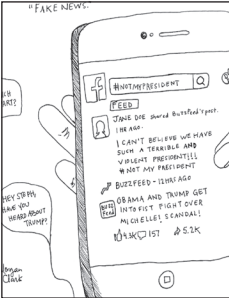 "FAKE NEWS."
f
#NOTMYPRESIDENT
FEED
JANE DOE shared Buzzfeed's post.
1 HR AGO.
I CAN'T BELIEVE WE HAVE
SUCH A TERRIBLE AND
VIOLENT PRESIDENT!!!
# NOT MY PRESIDENT
BUZZFEED - 12HRS AGO
Buzz
Feed
OBAMA AND TRUMP GET
INTO FIST FIGHT OVER
MICHELLE! SCANDAL!
4.3K 157 5.2K
ART?
HEY STEPH,
HAVE YOU
HEARD ABOUT
TRUMP?
Clark